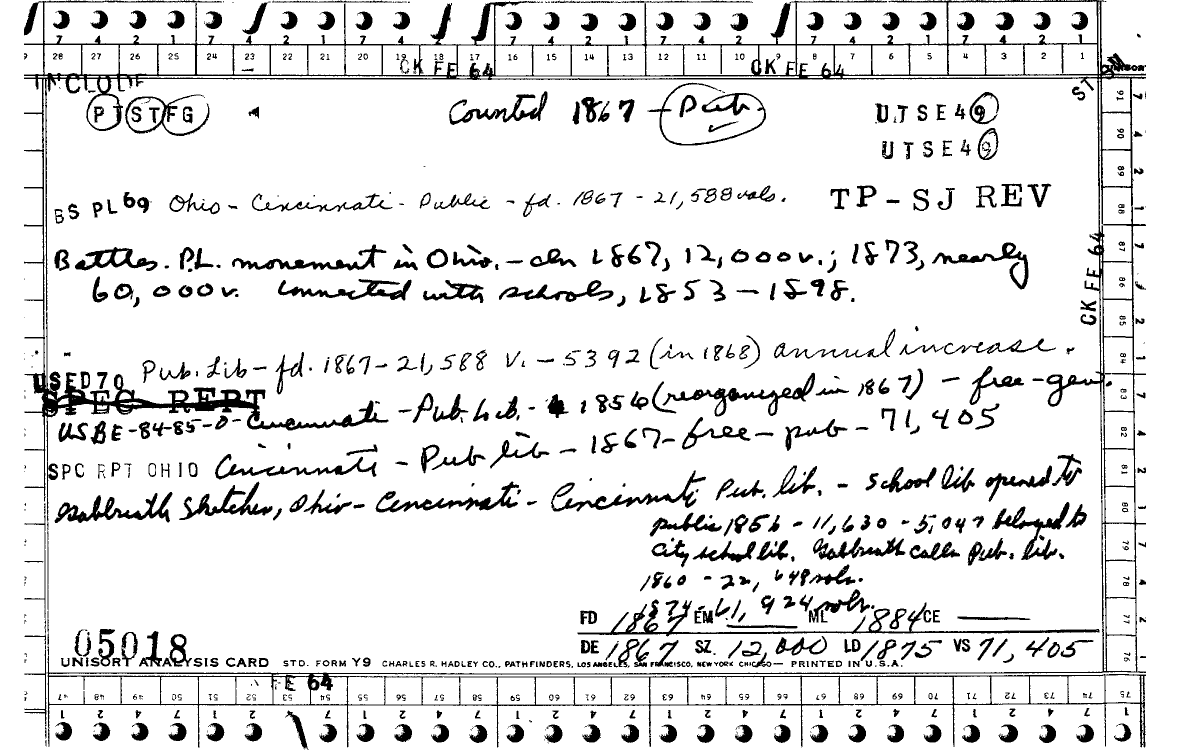 7 4 2 1 7 4 2 1 7 4 2 1 7 4 2 1 7 4 2 1 7 4 2 1 7 4 2 1
28 27 26 25 24 23 22 21 20 19 18 17 16 15 14 13 12 11 10 9 8 7 6 5 4 3 2 1
CK FE 64 CK FE 64
INCLUDE
PTSTFG Counted 1867 - Pub. UTSE49
UTSE49
BS PL69 Ohio - Cincinnati - Public - fd. 1867 - 21,588 vols. TP-SJ REV
Battles. P.L. movement in Ohio. - cln 1867, 12,000v.; 1873, nearly
60,000v. Connected with schools, 1853-1898.
CK FE 64
Pub. Lib - fd. 1867 - 21,588 v. - 5392 (in 1868) annual increase.
USED70
SPEC REPT
USBE-84-85-0-Cincinnati - Pub. Lib. - 1856 (reorganized in 1867) - free-gen.
SPC RPT OHIO Cincinnati - Pub lib - 1867-free-pub-71,405
Galbreath Sketches, Ohio - Cincinnati - Cincinnati Pub. lib. - School lib opened to
public 1856 - 11,630 - 5,047 belonged to
city school lib. Galbreath calls Pub. lib.
1860 - 22,648 vols.
1874 - 61,924 vols.
FD 1867 EM ML 1884 CE
DE 1867 SZ. 12,000 LD 1875 VS 71,405
05018
UNISORT ANALYSIS CARD STD. FORM Y9 CHARLES R. HADLEY CO., PATHFINDERS, LOS ANGELES, SAN FRANCISCO, NEW YORK CHICAGO — PRINTED IN U.S.A.
FE 64
47 48 49 50 51 52 53 54 55 56 57 58 59 60 61 62 63 64 65 66 67 68 69 70 71 72 73 74 75
1 2 4 7 1 2 4 7 1 2 4 7 1 2 4 7 1 2 4 7 1 2 4 7 1 2 4 7 1